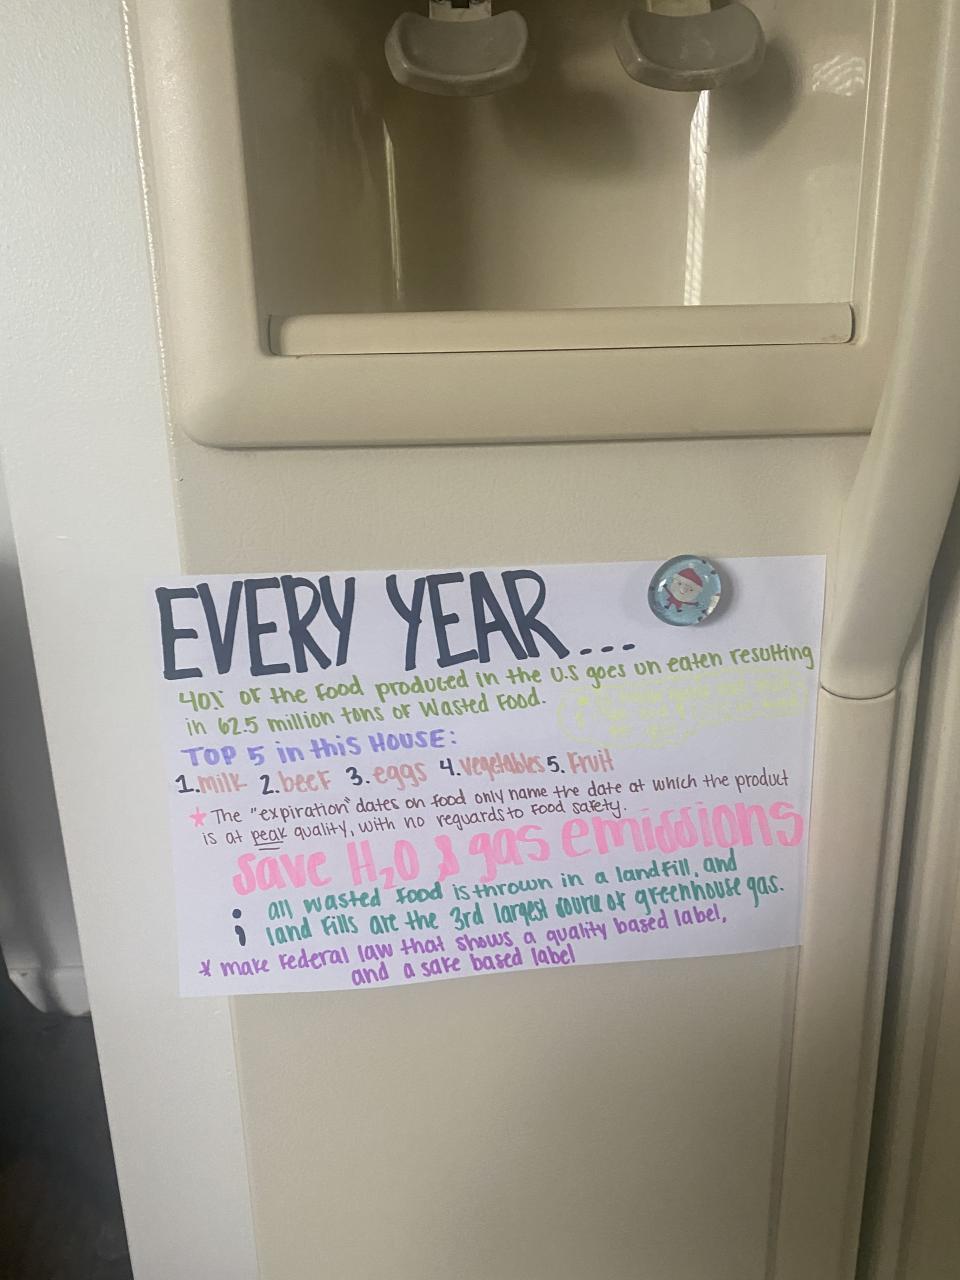 EVERY YEAR...
40% of the food produced in the U.S goes un eaten resulting
in 62.5 million tons of wasted food.
TOP 5 in this HOUSE:
1. milk 2. beef 3. eggs 4. vegetables 5. fruit
★ The "expiration" dates on food only name the date at which the product
is at peak quality, with no reguards to food safety.
Save H₂O & gas emissions
: all wasted food is thrown in a landfill, and
; land fills are the 3rd largest source of greenhouse gas.
* make federal law that shows a quality based label,
and a safe based label